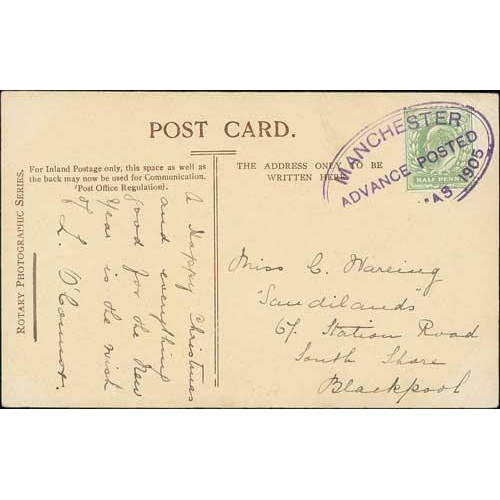 POST CARD.
ROTARY PHOTOGRAPHIC SERIES.
For Inland Postage only, this space as well as
the back may now be used for Communication.
(Post Office Regulation).
THE ADDRESS ONLY TO BE
WRITTEN HERE
MANCHESTER
ADVANCE POSTED
AS 1905
HALF PENN
A Happy Christmas
and everything
good for the New
Year is the wish
of L. O'Connor.
Miss C. Wareing
"Sandilands"
67 Station Road
South Shore
Blackpool